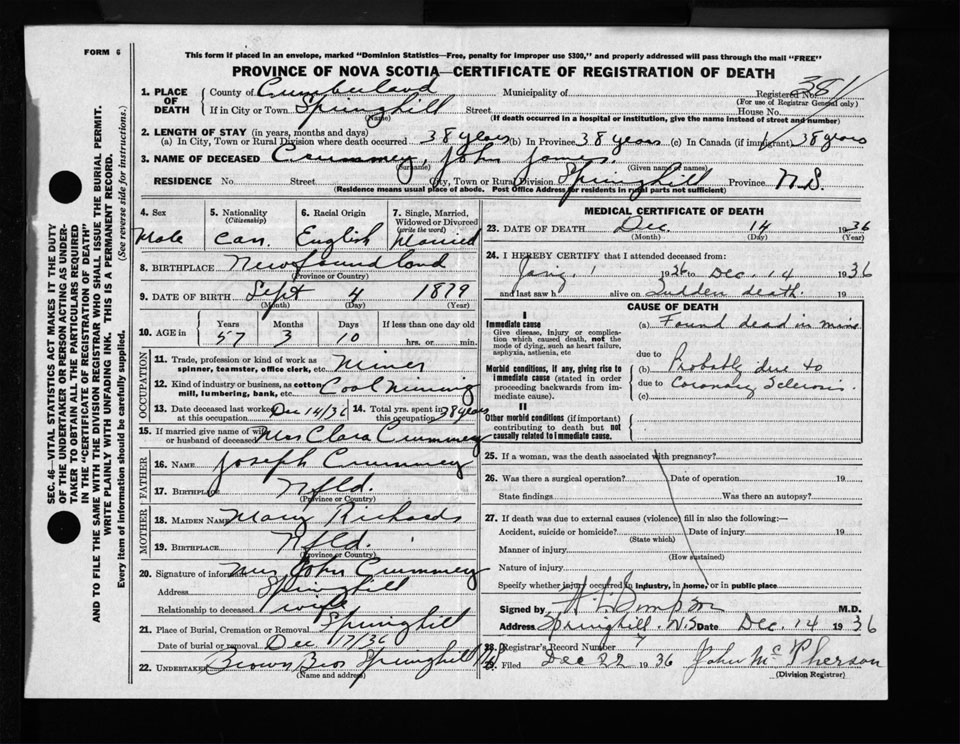 FORM 6
This form if placed in an envelope, marked "Dominion Statistics—Free, penalty for improper use $300," and properly addressed will pass through the mail "FREE"
PROVINCE OF NOVA SCOTIA—CERTIFICATE OF REGISTRATION OF DEATH
SEC. 46—VITAL STATISTICS ACT MAKES IT THE DUTY
OF THE UNDERTAKER OR PERSON ACTING AS UNDER-
TAKER TO OBTAIN ALL THE PARTICULARS REQUIRED
IN THE "CERTIFICATE OF REGISTRATION OF DEATH"
AND TO FILE THE SAME WITH THE DIVISION REGISTRAR WHO SHALL ISSUE THE BURIAL PERMIT.
WRITE PLAINLY WITH UNFADING INK. THIS IS A PERMANENT RECORD.
Every item of information should be carefully supplied. (See reverse side for instructions.)
1. PLACE OF DEATH
County of Cumberland Municipality of Registered No. 351
(For use of Registrar General only)
If in City or Town Springhill Street House No.
(Name) (If death occurred in a hospital or institution, give the name instead of street and number)
2. LENGTH OF STAY (in years, months and days)
(a) In City, Town or Rural Division where death occurred 38 years (b) In Province 38 years (c) In Canada (if immigrant) 38 years
3. NAME OF DECEASED Crummey, John James
(Surname) (Given name or names)
RESIDENCE No. Street City, Town or Rural Division Springhill Province N.S.
(Residence means usual place of abode. Post Office Address for residents in rural parts not sufficient)
4. Sex
Male
5. Nationality
(Citizenship)
Can.
6. Racial Origin
English
7. Single, Married,
Widowed or Divorced
(write the word)
Married
8. BIRTHPLACE Newfoundland
(Province or Country)
9. DATE OF BIRTH Sept 4 1879
(Month) (Day) (Year)
10. AGE in Years Months Days If less than one day old
57 3 10 hrs. or min.
OCCUPATION
11. Trade, profession or kind of work as
spinner, teamster, office clerk, etc. Miner
12. Kind of industry or business, as cotton
mill, lumbering, bank, etc. Coal Mining
13. Date deceased last worked
at this occupation Dec 14/36
14. Total yrs. spent in
this occupation 38 years
15. If married give name of wife
or husband of deceased Mrs Clara Crummey
FATHER
16. NAME Joseph Crummey
17. BIRTHPLACE Nfld.
(Province or Country)
MOTHER
18. MAIDEN NAME Mary Richards
19. BIRTHPLACE Nfld.
(Province or Country)
20. Signature of informant Mrs John Crummey
Address Springhill
Relationship to deceased wife
21. Place of Burial, Cremation or Removal Springhill
Date of burial or removal Dec 17/36
22. UNDERTAKER Brown Bros Springhill N.S.
(Name and address)
MEDICAL CERTIFICATE OF DEATH
23. DATE OF DEATH Dec. 14 1936
(Month) (Day) (Year)
24. I HEREBY CERTIFY that I attended deceased from:
1 1936 to Dec. 14 1936
and last saw h alive on Sudden death. 19
CAUSE OF DEATH
I
Immediate cause
Give disease, injury or complica-
tion which caused death, not the
mode of dying, such as heart failure,
asphyxia, asthenia, etc
(a) Found dead in mine
due to
Morbid conditions, if any, giving rise to
immediate cause (stated in order
proceeding backwards from im-
mediate cause).
(b) Probably due to
due to Coronary Sclerosis.
(c)
II
Other morbid conditions (if important)
contributing to death but not
causally related to immediate cause.
25. If a woman, was the death associated with pregnancy?
26. Was there a surgical operation? Date of operation 19
State findings Was there an autopsy?
27. If death was due to external causes (violence) fill in also the following:
Accident, suicide or homicide? Date of injury 19
(State which)
Manner of injury
(How sustained)
Nature of injury
Specify whether injury occurred in industry, in home, or in public place
Signed by Simpson M.D.
Address Springhill N.S. Date Dec. 14 1936
28. Registrar's Record Number
29. Filed Dec 22 1936 John McPherson
(Division Registrar)